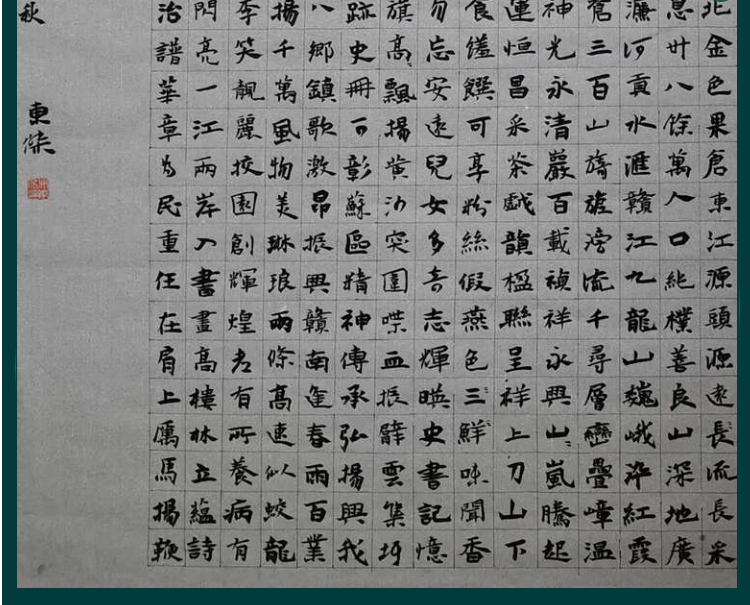 北金色果倉東江源頭源遠長流長采
息廿八餘萬人口純樸善良山深地廣
濂河貢水匯贛江九龍山巍峨淬紅霞
蒼三百山旖旎滂流千尋層巒疊嶂溫
神光永清嚴百載禎祥永興山嵐騰起
運恒昌采茶戲韻楹聯呈祥上刀山下
食饈饌可享粉絲假燕色三鮮味聞香
勿忘安遠兒女多奇志輝映史書記憶
旗高飄揚黄沙突圍喋血振臂雲集圩
跡史冊可彰蘇區精神傳承弘揚興我
八鄉鎮歌激昂振興贛南逢春雨百業
揚千萬風物美琳琅兩條高速似蛟龍
李笑靚麗校園創輝煌老有所養病有
門亮一江兩岸入書畫高樓林立蘊詩
治譜華章為民重任在肩上厲馬揚鞭
秋
東